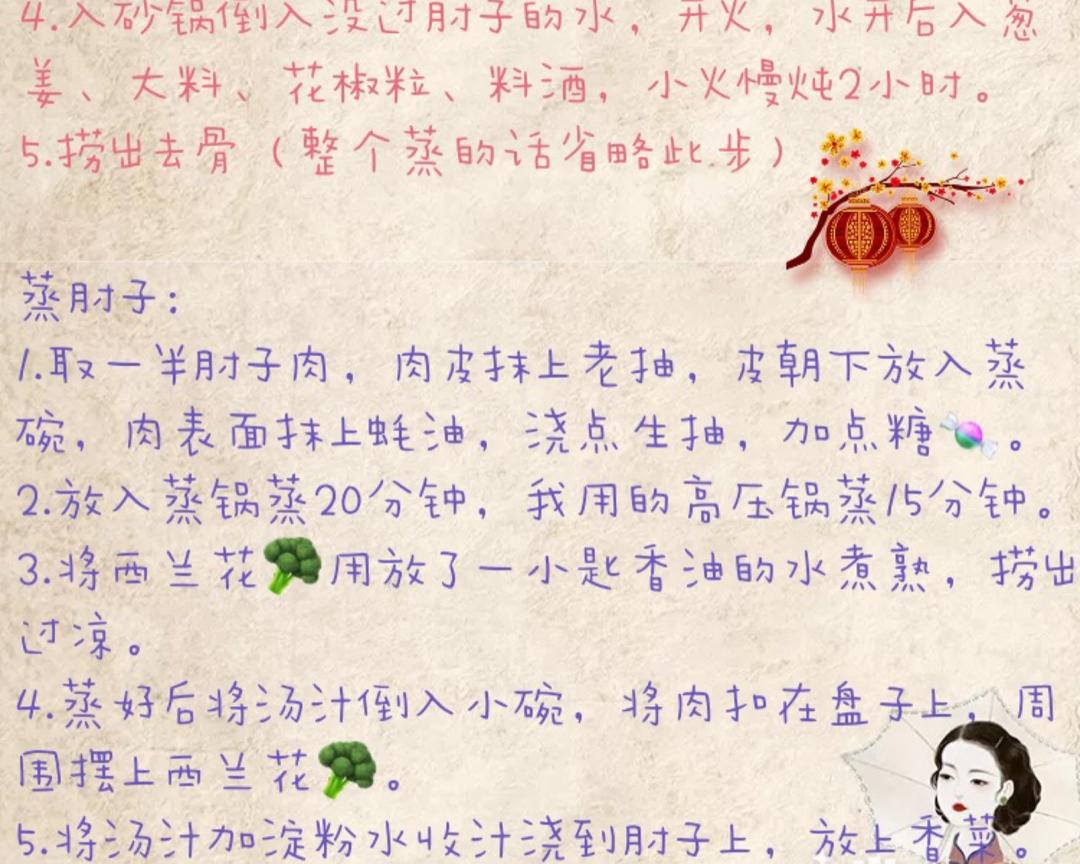 4.入砂锅倒入没过肘子的水，开火，水开后入葱
姜、大料、花椒粒、料酒，小火慢炖2小时。
5.捞出去骨（整个蒸的话省略此步）
蒸肘子：
1.取一半肘子肉，肉皮抹上老抽，皮朝下放入蒸
碗，肉表面抹上蚝油，浇点生抽，加点糖🍬。
2.放入蒸锅蒸20分钟，我用的高压锅蒸15分钟。
3.将西兰花🥦用放了一小匙香油的水煮熟，捞出
过凉。
4.蒸好后将汤汁倒入小碗，将肉扣在盘子上，周
围摆上西兰花🥦。
5.将汤汁加淀粉水收汁浇到肘子上，放上香菜。